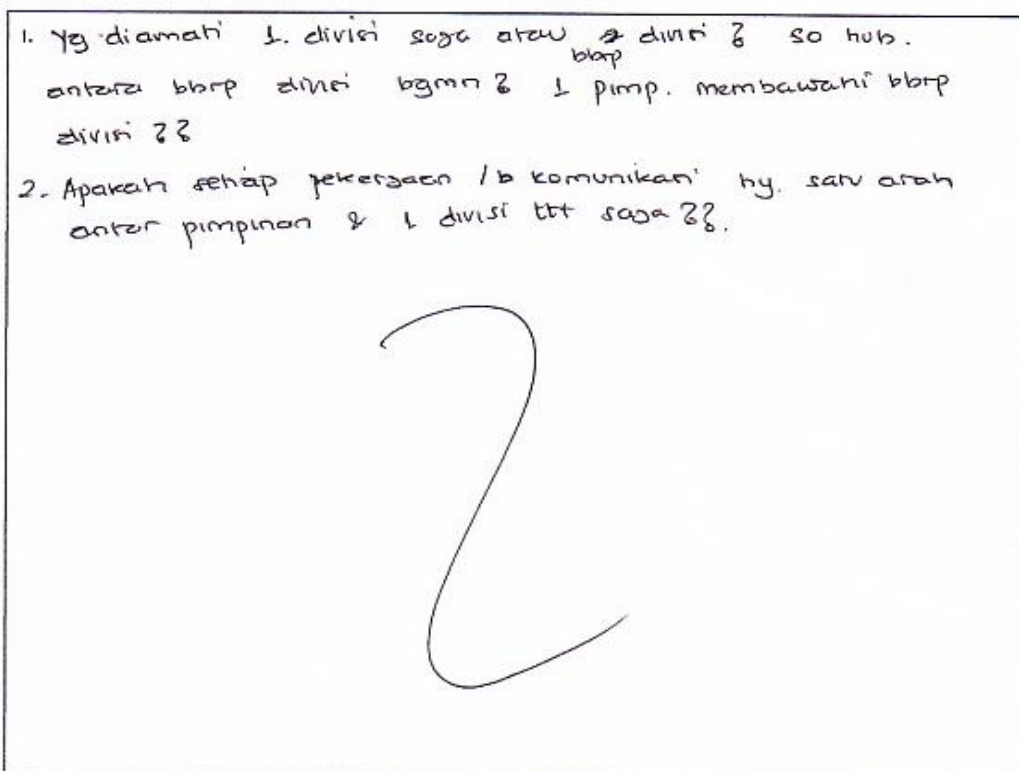 1. Yg diamati 1. divisi saja atau bbrp divisi ? so hub.
antara bbrp divisi bgmn ? 1 pimp. membawahi bbrp
divisi ??
2. Apakah setiap pekerjaan /b komunikasi hy. satu arah
antar pimpinan & 1 divisi ttt saja ??.